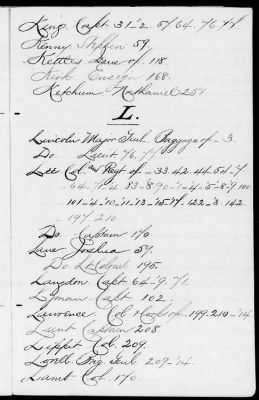 King, Capt 31-2. 57 64. 76. 77.
Kenny Steffen 59
Kettles Line of. 118.
Kirk Ensign 168.
Ketchum Nathaniel 251
L.
Lincoln Major Genl. Baggage of - 3.
Do. Lieut. 76. 77
Lee Col. and Regt of - 33. 42. 44. 54-7
-64. 71-4. 83-8. 90-1-4-5-8-9. 100
101-4-10-11-13-15. 17-122-3. 142.
197 210.
Do. Captain 170
Line Joshua 59.
Do Lt Colonel 195.
Langdon Capt 64-9. 71.
Lyman Capt 102.
Lawrence. Col of - 199. 210-14
Lunt Captain 208
Lippit Col. 209.
Lovell Brig. Genl 209-14.
Lamb Col. 170.